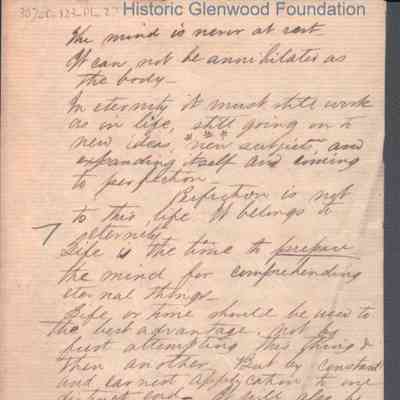 Historic Glenwood Foundation
The mind is never at rest
It can, not be annihilated as
the body—
In eternity it must still work
as in life, still going on to
new ideas, * * * new subjects, and
expanding itself and coming
to perfection—
Perfection is not
to this life It belongs to
eternity
Life is the time to prepare
the mind for comprehending
eternal things—
Life, or time should be used to
the best advantage, not by
first attempting this thing &
then another. But by constant
and earnest application to one
distinct end. It will also be